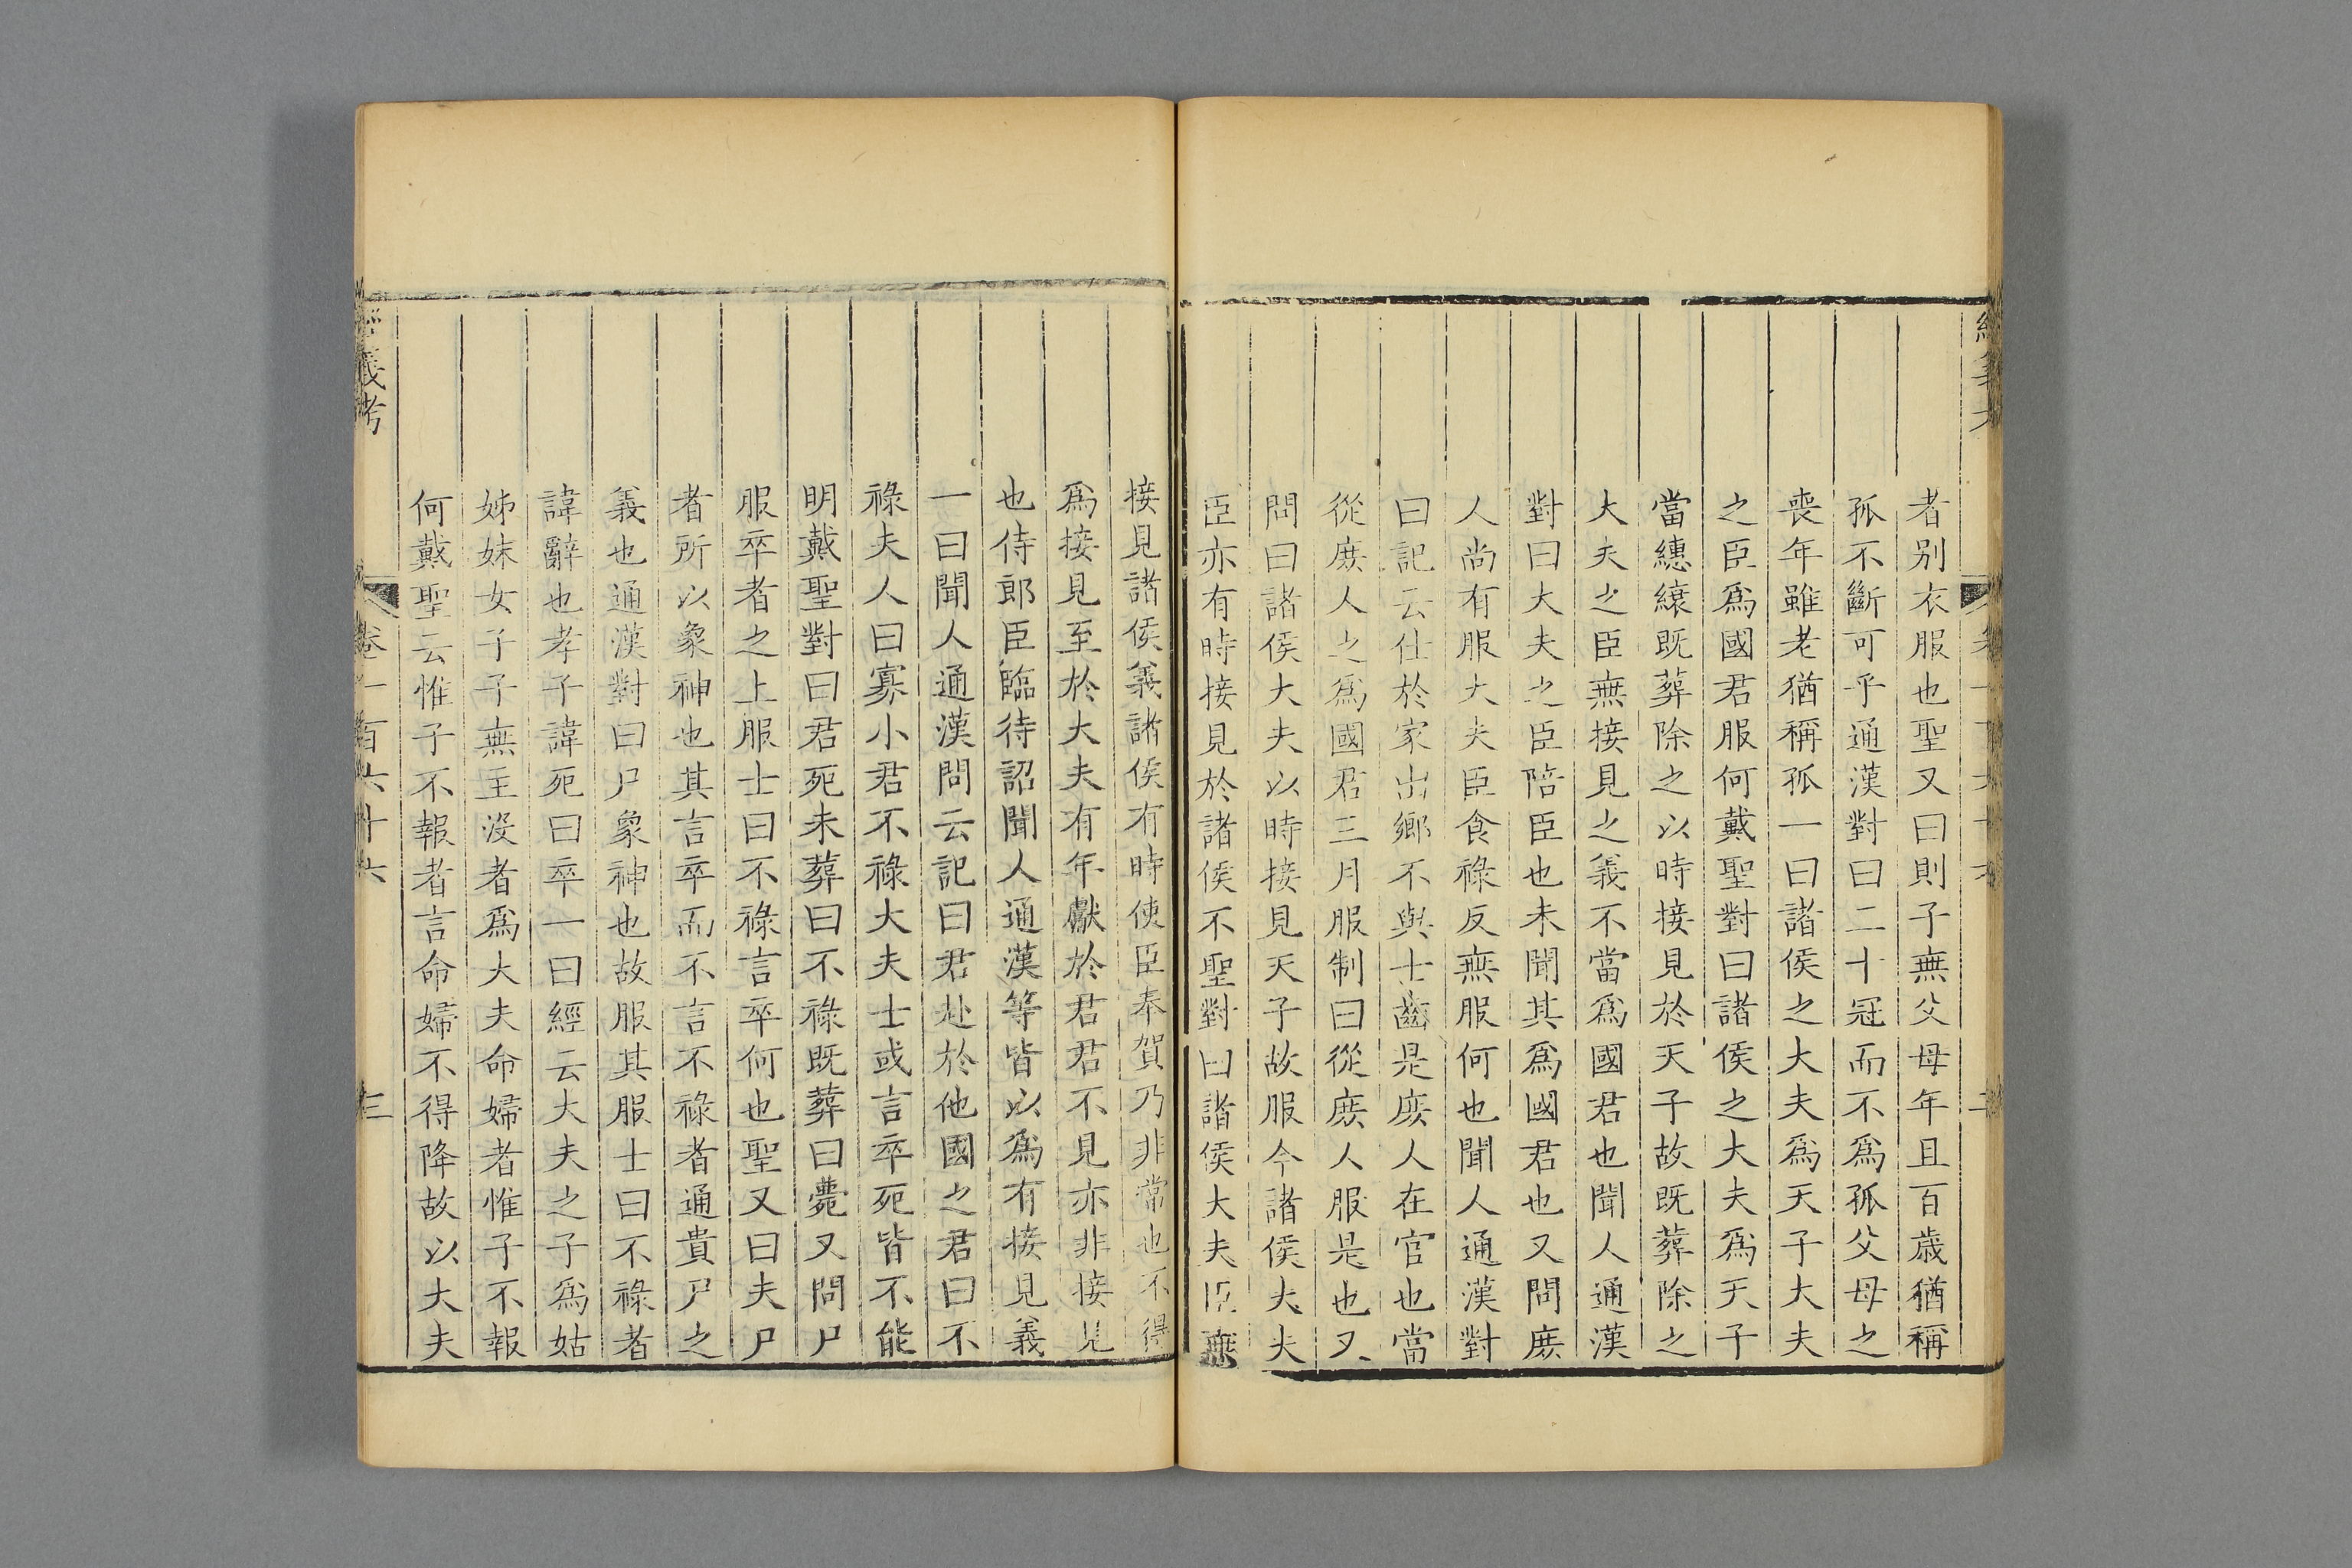 者别衣服也聖又曰則子無父母年且百歳猶稱
孤不斷可乎通漢對曰二十冠而不爲孤父母之
喪年雖老猶稱孤一曰諸侯之大夫爲天子大夫
之臣爲國君服何戴聖對曰諸侯之大夫爲天子
當繐縗既葬除之以時接見於天子故既葬除之
大夫之臣無接見之義不當爲國君也聞人通漢
對曰大夫之臣陪臣也未聞其爲國君也又問庶
人尚有服大夫臣食祿反無服何也聞人通漢對
曰記云仕於家出鄉不與士齒是庶人在官也當
從庶人之爲國君三月服制曰從庶人服是也又
問曰諸侯大夫以時接見天子故服今諸侯大夫
臣亦有時接見於諸侯不聖對曰諸侯大夫臣無
接見諸侯義諸侯有時使臣奉賀乃非常也不得
爲接見至於大夫有年獻於君君不見亦非接見
也侍郎臣臨待詔聞人通漢等皆以爲有接見義
一曰聞人通漢問云記曰君赴於他國之君曰不
祿夫人曰寡小君不祿大夫士或言卒死皆不能
明戴聖對曰君死未葬曰不祿既葬曰薨又問尸
服卒者之上服士曰不祿言卒何也聖又曰夫尸
者所以象神也其言卒而不言不祿者通貴尸之
義也通漢對曰尸象神也故服其服士曰不祿者
諱辭也孝子諱死曰卒一曰經云大夫之子爲姑
姊妹女子子無主沒者爲大夫命婦者惟子不報
何戴聖云惟子不報者言命婦不得降故以大夫
義考
卷一百六十六
三